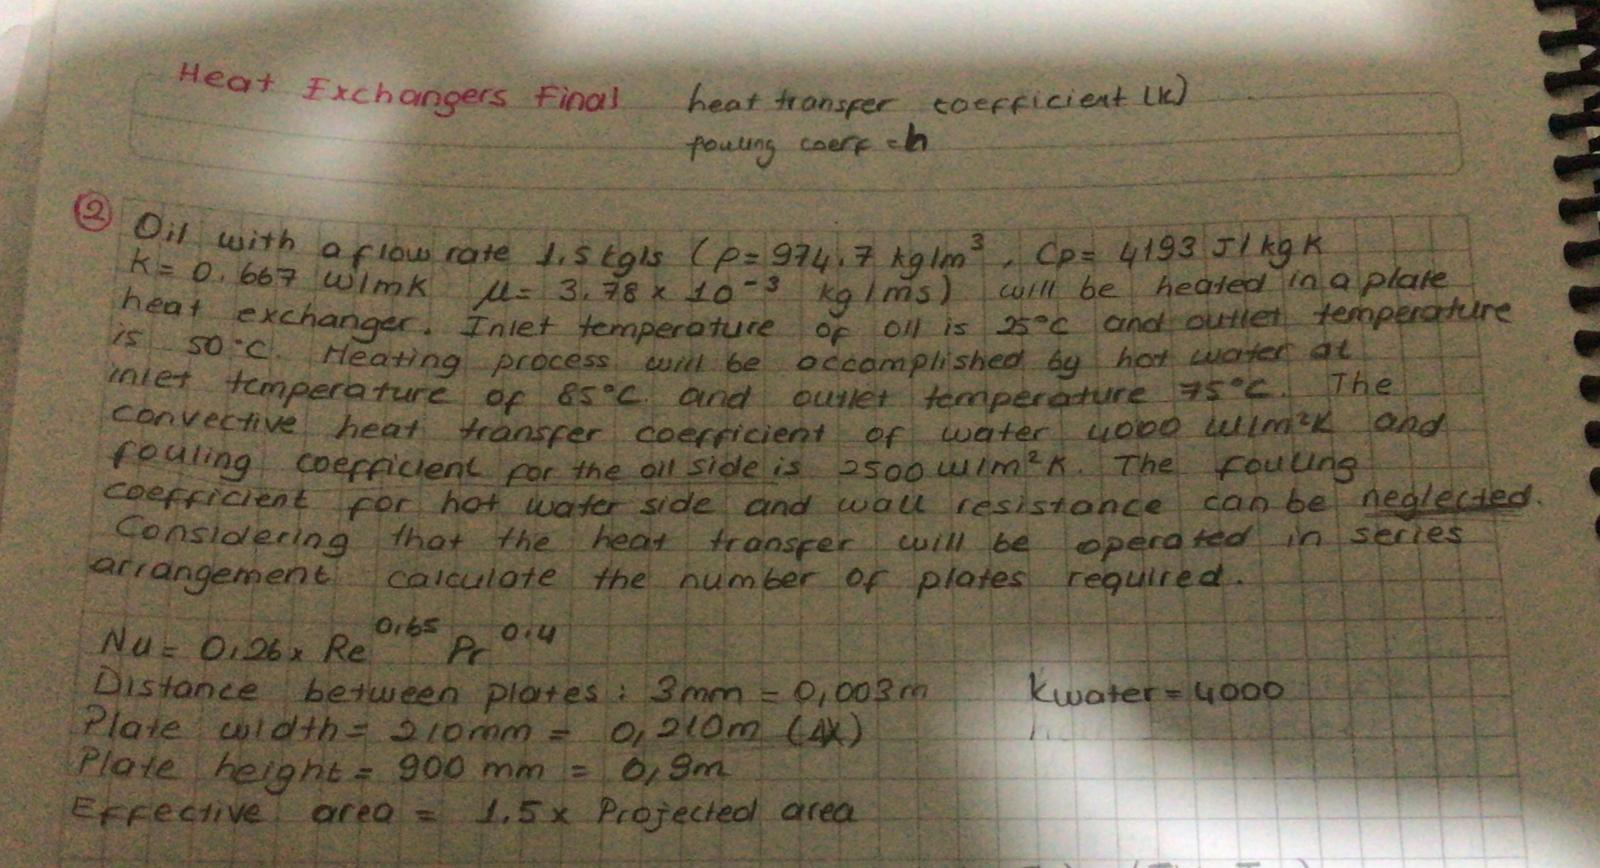 Heat Exchangers Final heat transfer coefficient (k)
fouling coeff = h
② Oil with a flow rate 1.5 kg/s (ρ = 974.7 kg/m³, Cp = 4193 J/kgK
k = 0.667 W/mK μ = 3.78 × 10⁻³ kg/ms) will be heated in a plate
heat exchanger. Inlet temperature of oil is 25°C and outlet temperature
is 50°C. Heating process will be accomplished by hot water at
inlet temperature of 85°C and outlet temperature 75°C. The
convective heat transfer coefficient of water 4000 W/m²K and
fouling coefficient for the oil side is 2500 W/m²K. The fouling
coefficient for hot water side and wall resistance can be neglected.
Considering that the heat transfer will be operated in series
arrangement calculate the number of plates required.
Nu = 0,26 × Re^0,65 Pr^0,4
Distance between plates : 3mm = 0,003m kwater = 4000
Plate width = 210mm = 0,210m (Δx)
Plate height = 900 mm = 0,9m
Effective area = 1.5 × Projected area